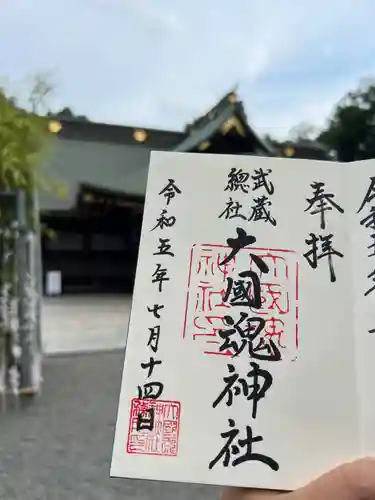 奉拝
武蔵
總社
大國魂神社
令和五年七月十四日